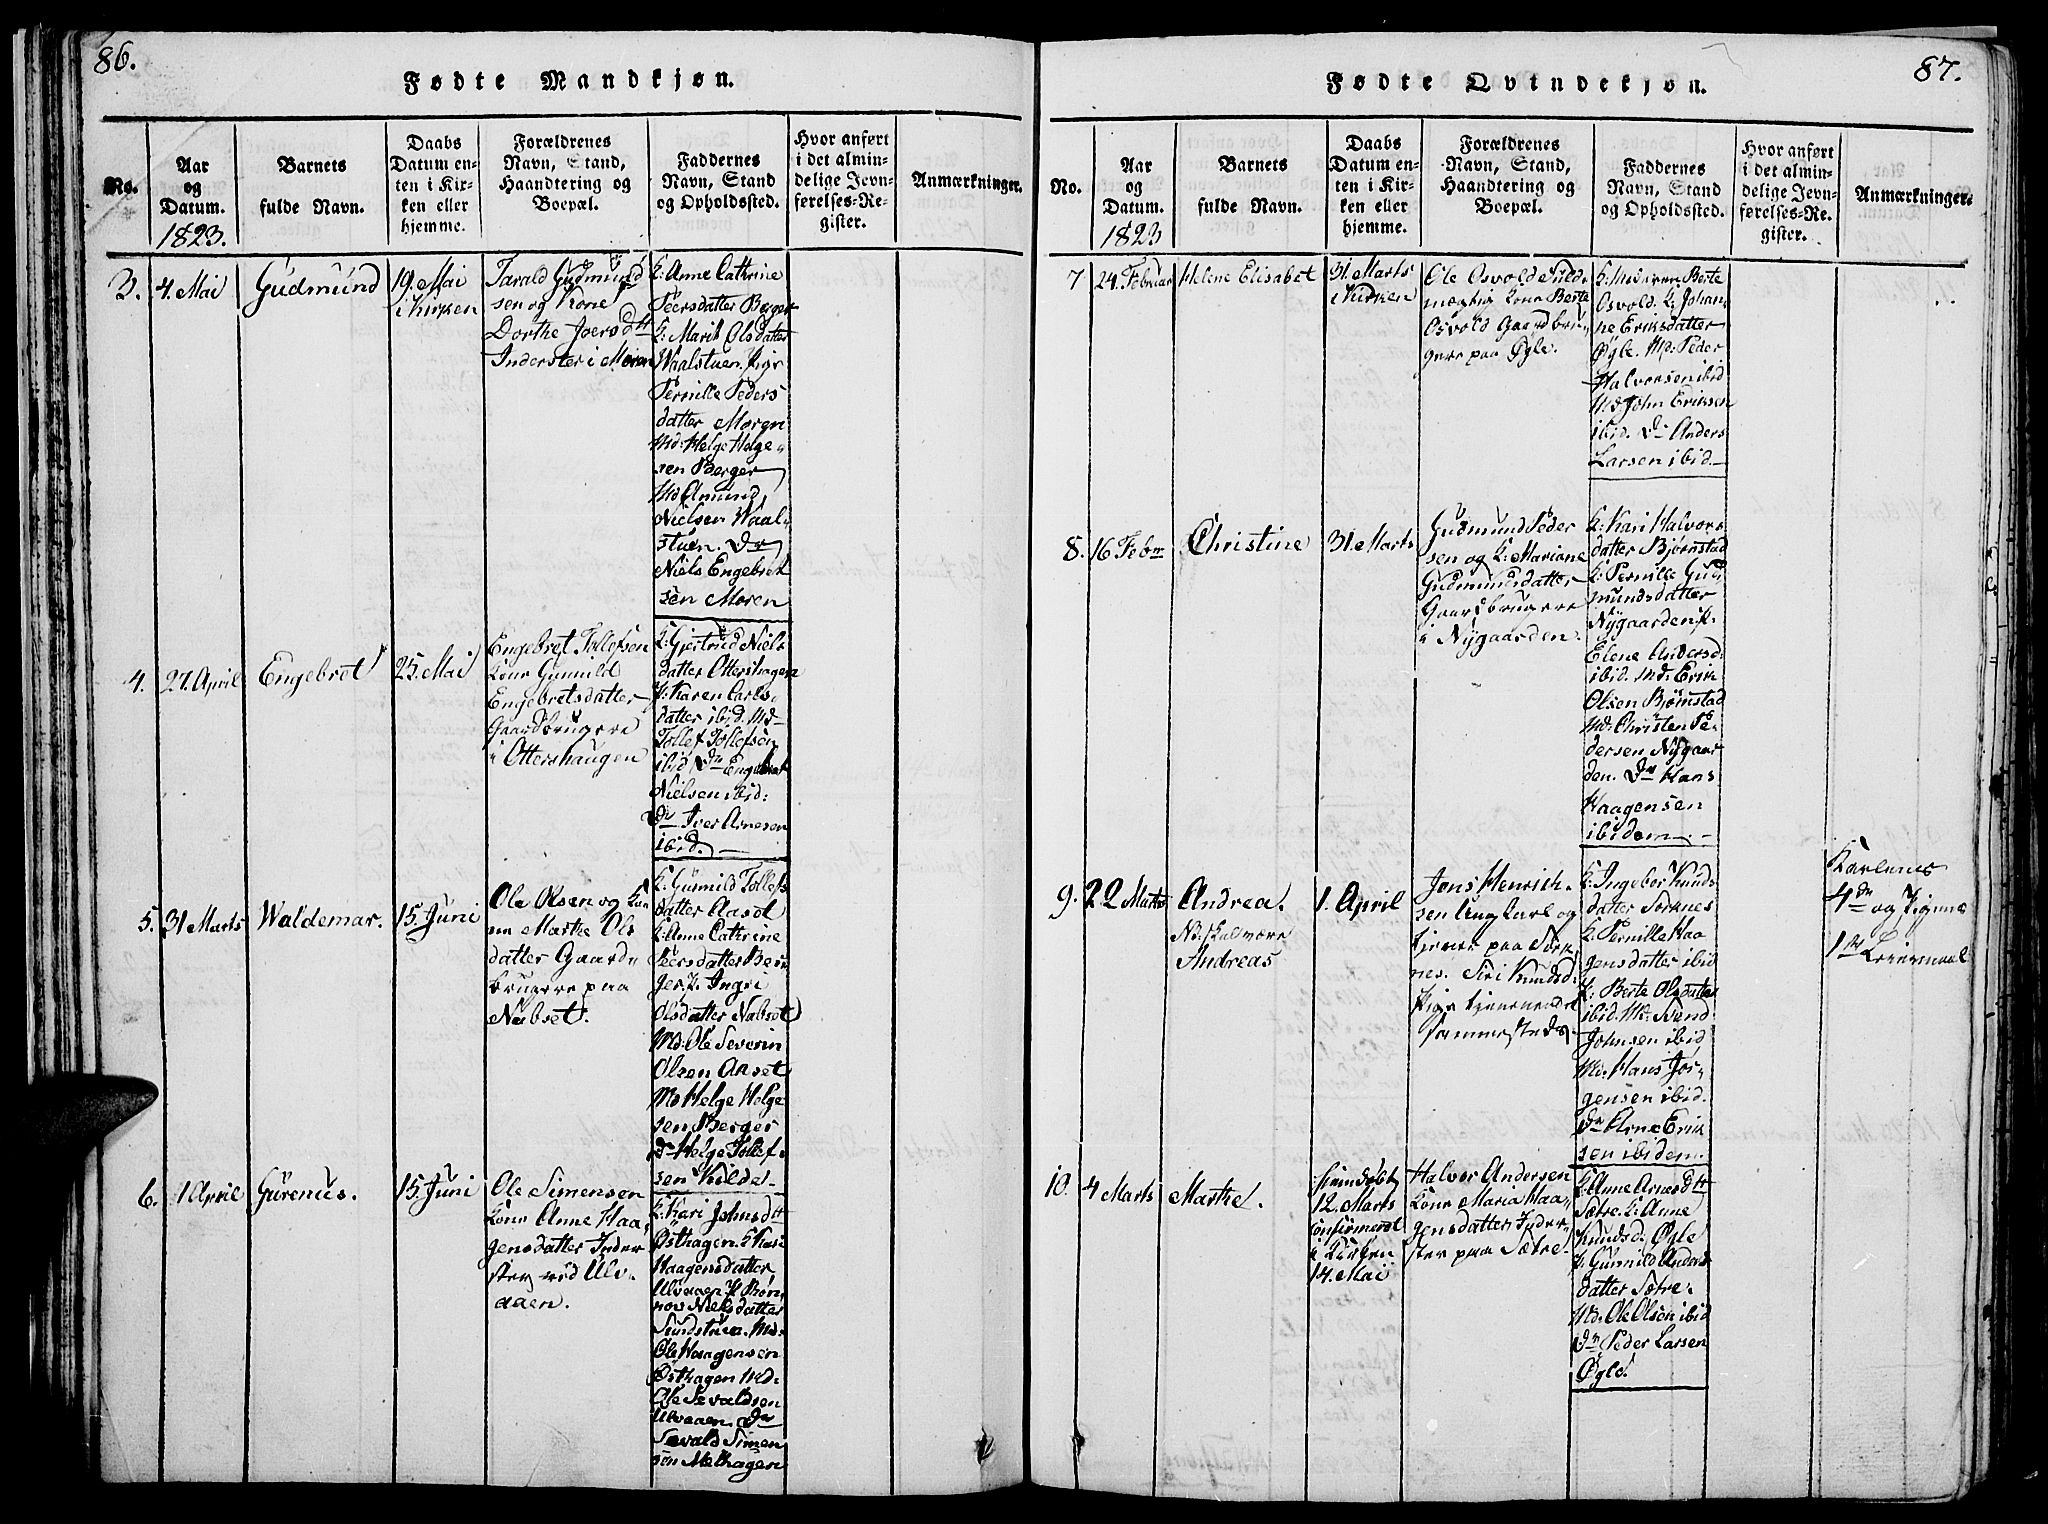 86.
Fødte Mandkjøn.
No.
Aar
og
Datum.
1823.
Barnets
fulde Navn.
Daabs
Datum en-
ten i Kir-
ken eller
hjemme.
Forældrenes
Navn, Stand,
Haandtering og
Boepæl.
Faddernes
Navn, Stand
og Opholdssted.
Hvor anført
i det almin-
delige Jevn-
førelses-Re-
gister.
Anmærkninger.
3.
4. Mai
Gudmund
19. Mai
i Kirken
Tarald Gudmund
sen og Kone
Dorthe Joersdtt
Inderster i Moren
K: Anne Cathrine
Peersdatter Berger
K: Marit Olsdatter
Waalstuen. Pige
Pernille Peders
datter Moren
Md: Helge Helge-
sen Berger
Md Amund
Nielsen Waal-
stuen. Dr
Niels Engebret
sen Moren
4.
27. April
Engebret
25. Mai
Engebret Tollefsen
Kone Gunnild
Engebretsdatter
Gaardbrugere
i Ottershaugen
K: Gjertrud Niels-
datter Ottershagen
P. Karen Carls-
datter ibid. Md-
Tollef Tollefsen
ibid, Dr Engebret
Nielsen ibid:
Dr Iver Arnesen
ibid.
5.
31 Marts
Waldemar.
15. Juni
Ole Olsen og Ko-
ne Marthe Ols
datter Gaard-
brugere paa
Nabset.
K. Gunnild Tollefs
datter Aaset
K: Anne Cathrine
Peersdatter Ber-
ger. P. Ingri
Olsdatter Nabset
Md: Ole Severin
Olsen Aaset
Md Helge Helge
sen Berger
Dr Helge Tollef-
sen Kilde
6.
1 April
Gurenus.
15. Juni
Ole Simensen
Kone Anne Haa-
gensdatter Inder
ster ved Ulv-
aaen.
K: Kari Johnsdtt
Østhagen. K Kari
Haagensdatter
Ulvaaen P. Røn-
nov Nielsdatter
Sundstuen. Md:
Ole Haagensen
Østhagen Md:
Ole Sevaldsen
Ulvaaen. Dr
Sevald Simen
sen Melhagen
87.
Fødte Qvindekjøn.
No.
Aar
og
Datum.
1823
Barnets
fulde Navn.
Daabs
Datum en-
ten i Kir-
ken eller
hjemme.
Forældrenes
Navn, Stand,
Haandtering og
Boepæl.
Faddernes
Navn, Stand
og Opholdssted.
Hvor anført
i det almin-
delige Jevn-
førelses-Re-
gister.
Anmærkninger.
7
24. Februar
Helene Elisabet
31. Marts
i Kirken
Ole Osvold Fuld-
mægtig Kone Berte
Osvold Gaardbru-
gere paa Øgle.
Berte
Osvold. K. Johan-
ne Eriksdatter
Øgle. Md. Peder
Halvorsen ibid
Md John Eriksen
ibid. Dr Anders
Larsen ibid.
8.
16 Febr
Christine
31. Marts
Gudmund Peder
sen og K: Mariane
Gudmundsdatter
Gaardbrugere
i Nygaarden.
K: Kari Halvors
datter Bjørnstad
K: Pernille Gud
mundsdatter
Nygaarden. P.
Elene Andersd.
ibid. Md. Erik
Olsen Bjørnstad
Md: Christen Pe-
dersen Nygaar
den. Dr Hans
Haagensen
ibidem.
9.
22 Marts
Andrea.
Nb: skal være
Andreas
1. April
Jens Henrich-
sen Ungkarl og
tjener paa Sørk-
nes. Siri Knudsd.
Pige tjenende
sammesteds.
K. Ingebor Knuds
datter Sørknes
K: Pernille Haa
gensdatter ibid
P. Berte Olsdatter
ibid. Md. Svend
Johnsen ibid
Md. Hans Jør-
gensen ibid.
Dr Arne Erik
sen ibidem.
Karlenes
4de og Pigens
1ste Leiermaal
10.
4 Marts
Marthe.
hjemdøbt
12. Marts
confirmeret
i Kirken
14. Mai
Halvor Andersen
Kone Maria Haa-
gensdatter Inder-
ster paa Sætre.
K. Anne Arnesdtt
Sætre. K: Anne
Knudsd. Øgle
P. Gunnild Anders
datter Sætre.
Md. Ole Olsen ibid
Dr Peder Larsen
Øgle.